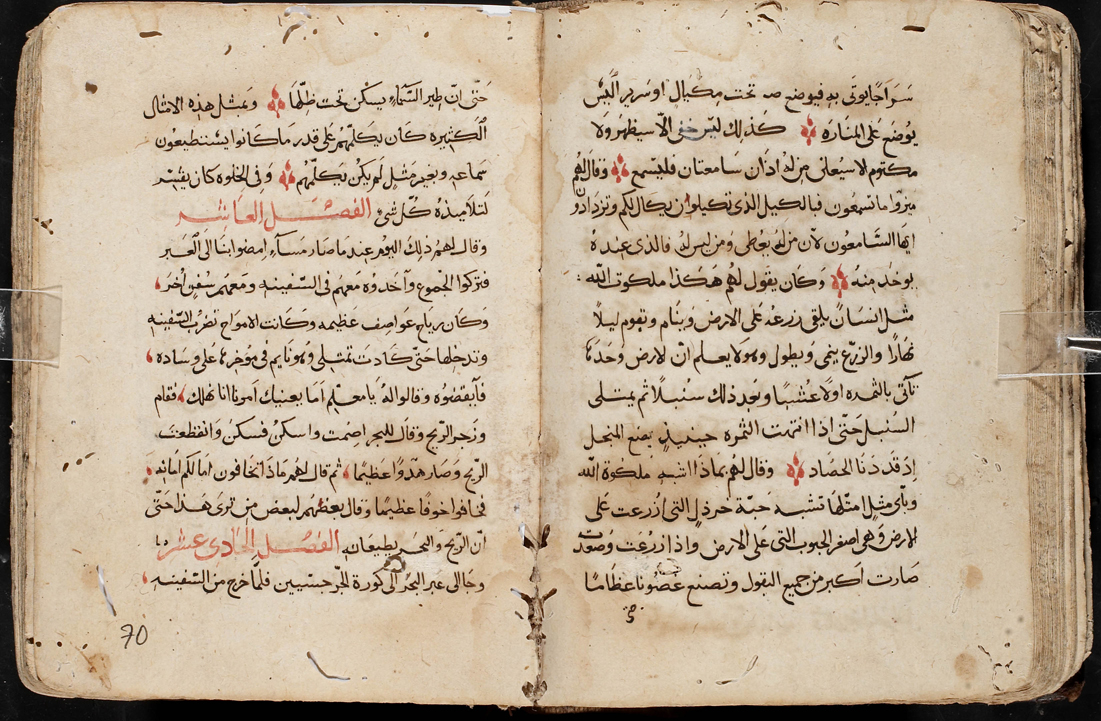 سراجا يوتى به فيوضع تحت مكيال او سرير اليس
يوضع على المناره كذلك ليس خفى الا سيظهر ولا
مكتوم لا سيعلن من له اذان سامعتان فليسمع وقال لهم
ميزوا ما تسمعون فبالكيل الذى تكيلوا يكال لكم وتزدادون
ايها السامعون لان من له يعطى ومن ليس له فالذى عنده
يوخد منه وكان يقول لهم هكذا ملكوت الله :
مثل انسان يلقى زرعه على الارض وينام ويقوم ليلا
نهارا والزرع ينمى ويطول وهو لا يعلم ان لارض وحدها
تاتى بالثمره اولا عشبا وبعد ذلك سنبلا ثم يمتلى
السنبل حتى اذا انتهت الثمره حينيذ يضع المنجل
اذ قد دنا الحصاد وقال لهم بماذا اشبه ملكوة الله
وباى مثل امثلها تشبه حبة خردل التى ازرعت على
لارض وهى اصغر الحبوب التى على الارض واذا زرعت وصعدت
صارت اكبر من جميع البقول وتصنع غضونا عظاما
حتى ان طير السماء يسكن تحت ظلها وبمثل هذه الامثال
الكثيره كان يكلمهم على قدر ما كانوا يستطيعون
سماعه وبغير مثل لم يكن يكلمهم وفى الخلوه كان يفسر
لتلاميذه كل شى الفصل العاشر
وقال لهم ذلك اليوم عندما صار مساء امضوا بنا الى العبر
فتركوا الجموع واخدوه معهم فى السفينه ومعهم سفن اخر
وكان رياح عواصف عظيمه وكانت الامواج تضرب السفينه
وتدخلها حتى كادت تمتلى وهو نايم فى موخرها على وساده
فايقضوه وقالوا له يا معلم اما يعنيك امرنا اننا نهلك فقام
وزجر الريح وقال للبحر اصمت واسكن فسكن وانقطعت
الريح وصار هدوا عظيما ثم قال لهم ماذا تخافون اما لكم امانه
فخافوا خوفا عظيما وقال بعظهم لبعض من ترى هذا حتى
ان الريح والبحر يطيعانه الفصل الحادى عشر
وجا الى عبر البحر الى كورة الجرجسيين فلما خرج من السفينه
70